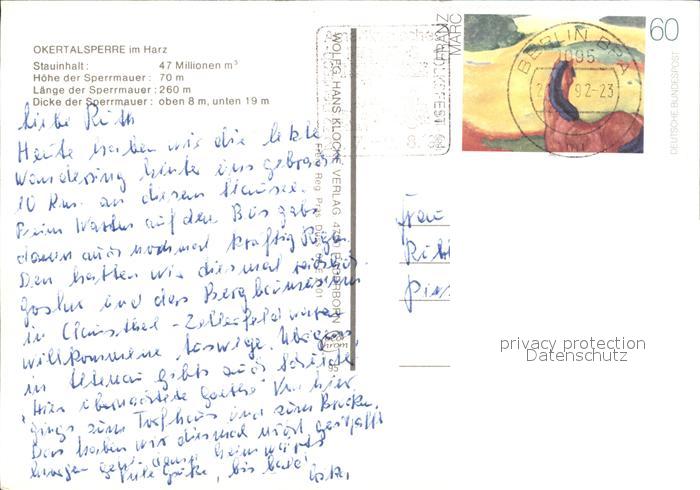 OKERTALSPERRE im Harz
Stauinhalt: 47 Millionen m³
Höhe der Sperrmauer: 70 m
Länge der Sperrmauer: 260 m
Dicke der Sperrmauer: oben 8 m, unten 19 m
Liebe Ruth
Heute haben wir die letzte
Wanderung hinter uns gebracht
10 Km. an diesem Stausee.
Beim Warten auf den Bus gabs
dann auch nochmal kräftig Regen.
Den hatten wir diesmal reichlich.
Goslar und das Bergbaumuseum
in Clausthal-Zellerfeld waren
willkommene Auswege. Übrigens
in Altenau gibts auch Schilder,
"Hier übernachtete Goethe" Von hier
gings zum Torfhaus und zum Brocken,
Das haben wir diesmal nicht geschafft
Morgen geht dann heimwärts
Viele Grüße, bis bald!
WOLFG. HANS KLOCKE VERLAG 4790 PADERBORN
FRANZ
MARC
60
DEUTSCHE BUNDESPOST
BERLIN
1095
92-23
Frau
privacy protection
Datenschutz